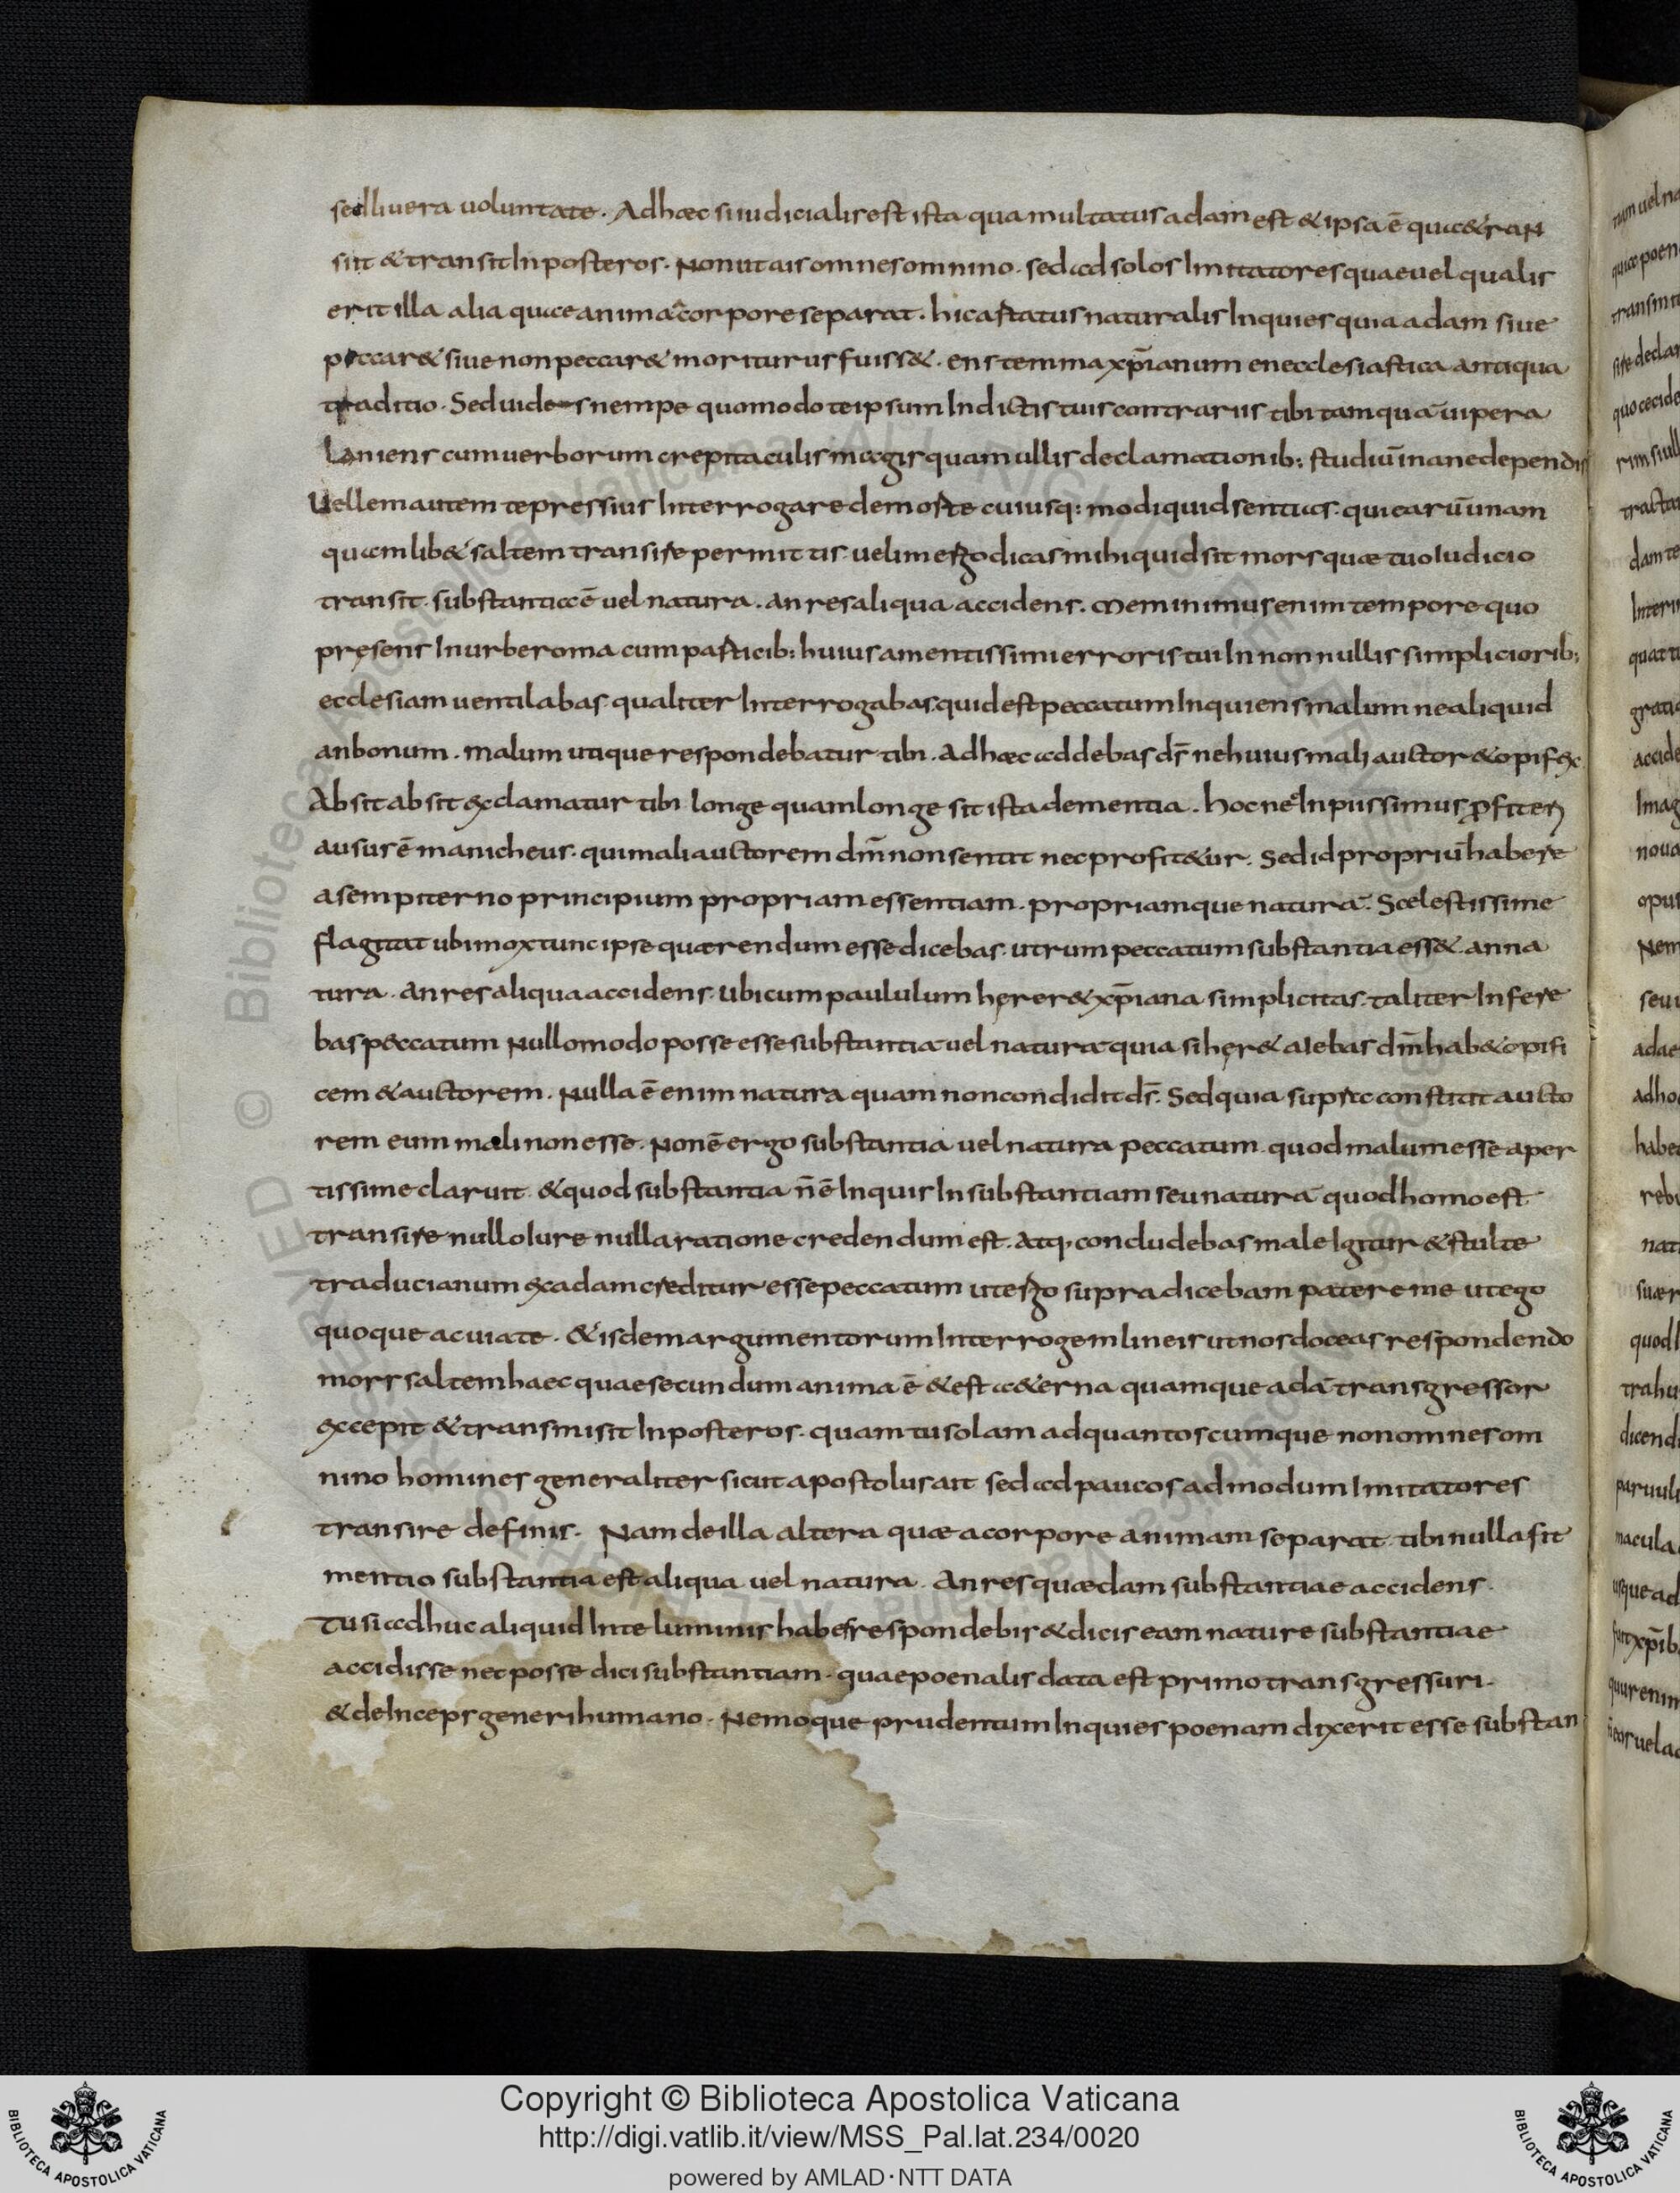 sed livera voluntate. Ad hæc si iudicialis est ista qua multatus adam est & ipsa ē quae & tran
siit & transit In posteros. Non ut ais omnes omnino. sed ad solos Imitatores quae uel qualis
erit illa alia quae anima c̄orpore separat. hic astatus naturalis Inquies quia adam siue
peccar& siue non peccar& moriturus fuiss&. en stemma xp̄ianum en ecclesiastica antiqua
traditio. Sed uides nempe quomodo te ipsum In dictis tuis contrariis tibi tamquā uipera
Laniens cum uerborum crepitaculis magis quam ullis declamationib; studiū inane dependis
Uellem autem te pressius Interrogare de morte cuiusq; modi quid sentias. qui earū unam
quamlib& saltem transire permittis. uelim ergo dicas mihi quid sit mors quæ tuo Iudicio
transit. substantia ē uel natura. an res aliqua accidens. Meminimus enim tempore quo
presens In urbe roma cum pasticib; huius amentissimi erroris tui In nonnullis simpliciorib;
ecclesiam uentilabas. qualiter Interrogabas. quid est peccatum Inquiens malum ne aliquid
an bonum. malum utique respondebatur tibi. Ad hæc addebas d̄s ne huius mali auctor & opifex
Absit absit exclamatur tibi longe quam longe sit ista dementia. hoc ne Inpiissimus p̄fiteri
ausus ē manicheus. qui mali auctorem dm̄ non sentit nec profit&ur. Sed id propriū habere
a sempiterno principium propriam essentiam. propriamque naturā. Scelestissime
flagitat ubi mox tunc ipse quærendum esse dicebas. utrum peccatum substantia ess& an na
tura. an res aliqua accidens. ubi cum paululum herer& xp̄iana simplicitas. taliter Infere
bas peccatum Nullo modo posse esse substantia uel natura quia si her& aIebas dm̄ hab& opifi
cem & auctorem. Nulla ē enim natura quam non condidit d̄s. Sed quia supra constitit aucto
rem eum mali non esse. Non ē ergo substantia uel natura peccatum. quod malum esse aper
tissime claruit. & quod substantia n̄ ē Inquis In substantiam seu naturā quod homo est
transire nullo Iure nulla ratione credendum est. Atq; concludebas male Igitur & stulte
traducianum ex adam creditur esse peccatum ut ergo supra dicebam patere me ut ego
quoque ac uiate. & isdem argumentorum Interrogem lineis ut nos doceas respondendo
mors saltem haec quae secundum anima ē & est a&erna quamque adā transgressor
excepit & transmisit In posteros. quam tu solam ad quantoscumque non omnes om
nino homines generaliter sicut apostolus ait sed ad paucos admodum Imitatores
transire definis. Nam de illa altera quæ a corpore animam separat tibi nulla fit
mentio substantia est aliqua uel natura. An res quædam substantiae accidens.
Tu si adhuc aliquid In te luminis habes respondebis & dicis eam nature substantiae
accidisse nec posse dici substantiam. quae poenalis data est primo transgressuri.
& deInceps generi humano. Nemoque prudentum Inquies poenam dixerit esse substan
Copyright © Biblioteca Apostolica Vaticana
http://digi.vatlib.it/view/MSS_Pal.lat.234/0020
powered by AMLAD·NTT DATA
BIBLIOTECA APOSTOLICA VATICANA
BIBLIOTECA APOSTOLICA VATICANA